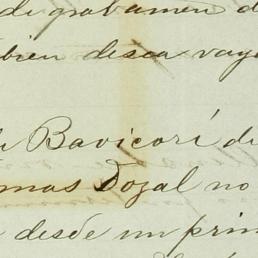 di grabamen d
bien desea vay
Bavicorí de
mas Dozal no
desde un prim